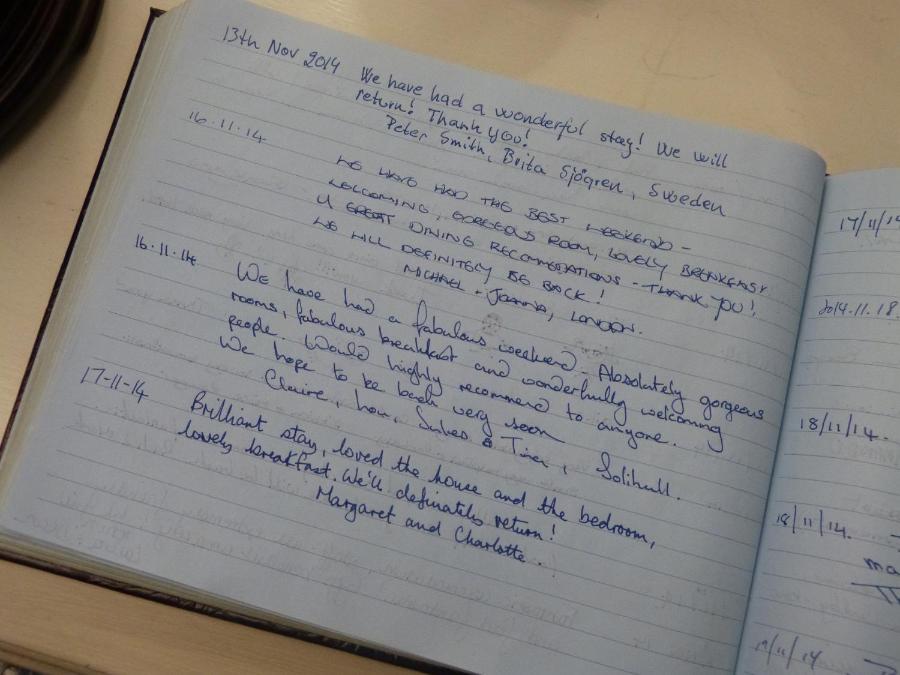 13th Nov 2014 We have had a wonderful stay! We will
return! Thank you!
Peter Smith, Brita Sjögren, Sweden
16.11.14
WE HAVE HAD THE BEST WEEKEND -
WELCOMING, GORGEOUS ROOM, LOVELY BREAKFAST
GREAT DINING RECOMMENDATIONS - THANK YOU!
WE WILL DEFINITELY BE BACK!
MICHAEL + JOANNA, LONDON.
16.11.14
We have had a fabulous weekend. Absolutely gorgeous
rooms, fabulous breakfast and wonderfully welcoming
people. Would highly recommend to anyone.
We hope to be back very soon
Claire, Solihull.
17-11-14
Brilliant stay, loved the house and the bedroom,
lovely breakfast. We'll definately return!
Margaret and Charlotte.
17/11/14
2014.11.18
18/11/14.
18/11/14.
ma
Th
19/11/14